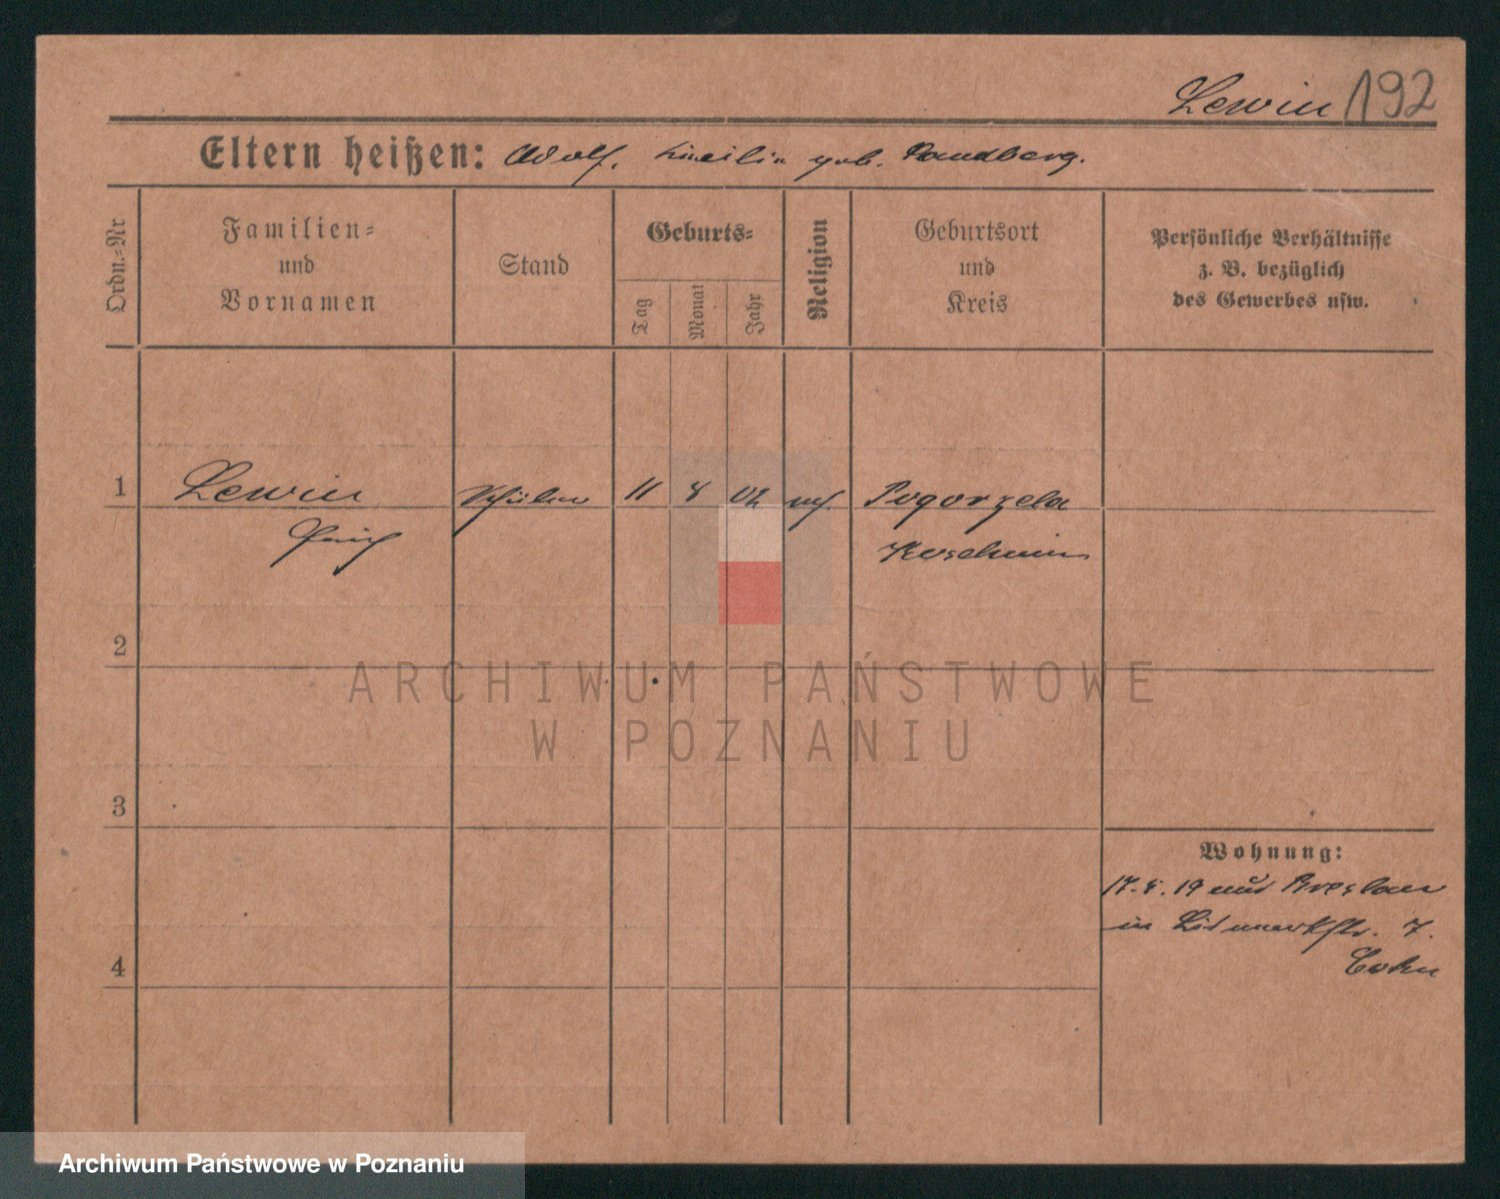 Lewin 192
Eltern heißen: Adolf, geb. Sandberg.
Ordn.-Nr
Familien-
und
Vornamen
Stand
Geburts-
Tag
Monat
Jahr
Religion
Geburtsort
und
Kreis
Persönliche Verhältnisse
z. B. bezüglich
des Gewerbes usw.
1 Lewin Schüler 11 8 02 Pogorzela
Koschmin
2
3
4
Wohnung:
17. 19 aus Breslau
in 7.
Cohn
ARCHIWUM PAŃSTWOWE
W POZNANIU
Archiwum Państwowe w Poznaniu